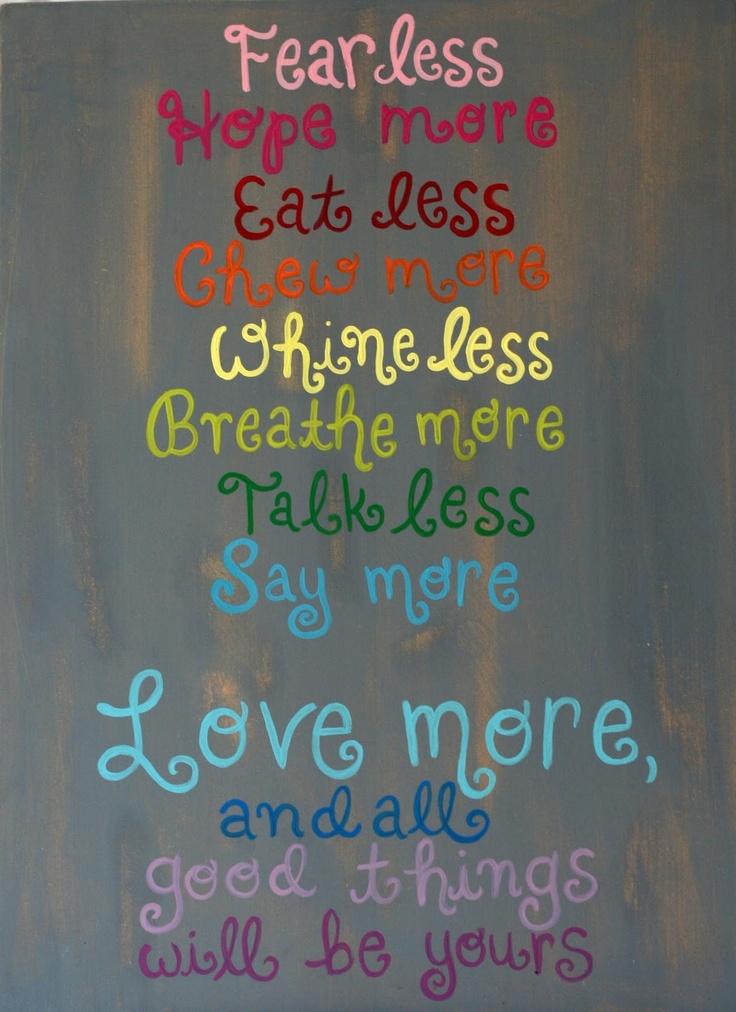 Fear less
Hope more
Eat less
Chew more
Whine less
Breathe more
Talk less
Say more
Love more,
and all
good things
will be yours